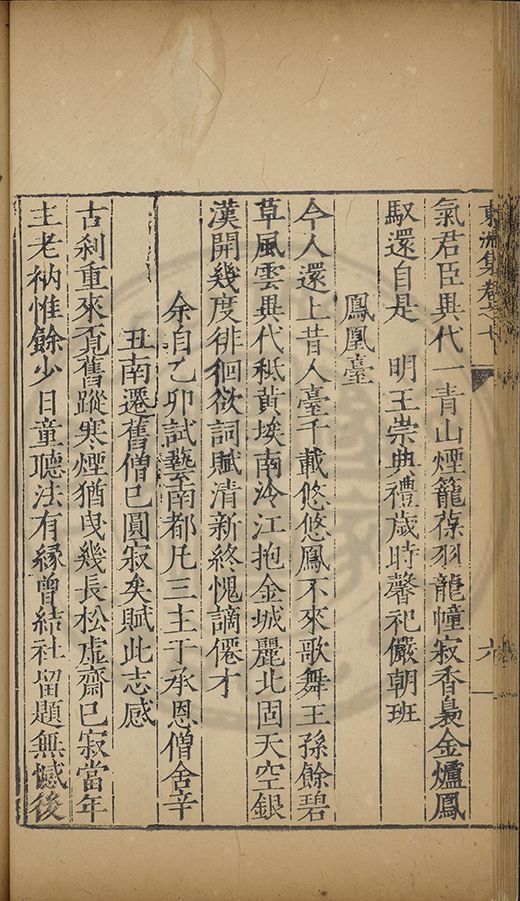 東洲集卷之七
六
氣君臣異代一青山煙籠葆羽龍幢寂香裊金爐鳳
馭還自是　明王崇典禮歲時馨祀儼朝班
鳳凰臺
今人還上昔人臺千載悠悠鳳不來歌舞王孫餘碧
草風雲異代秪黃埃南泠江抱金城麗北固天空銀
漢開幾度徘徊欲詞賦清新終愧謫僊才
余自乙卯試藝南都凡三主于承恩僧舍辛
丑南遷舊僧已圓寂矣賦此志感
古刹重來覓舊蹤寒煙猶曳幾長松虛齋已寂當年
主老衲惟餘少日童聽法有緣曾結社留題無憾後